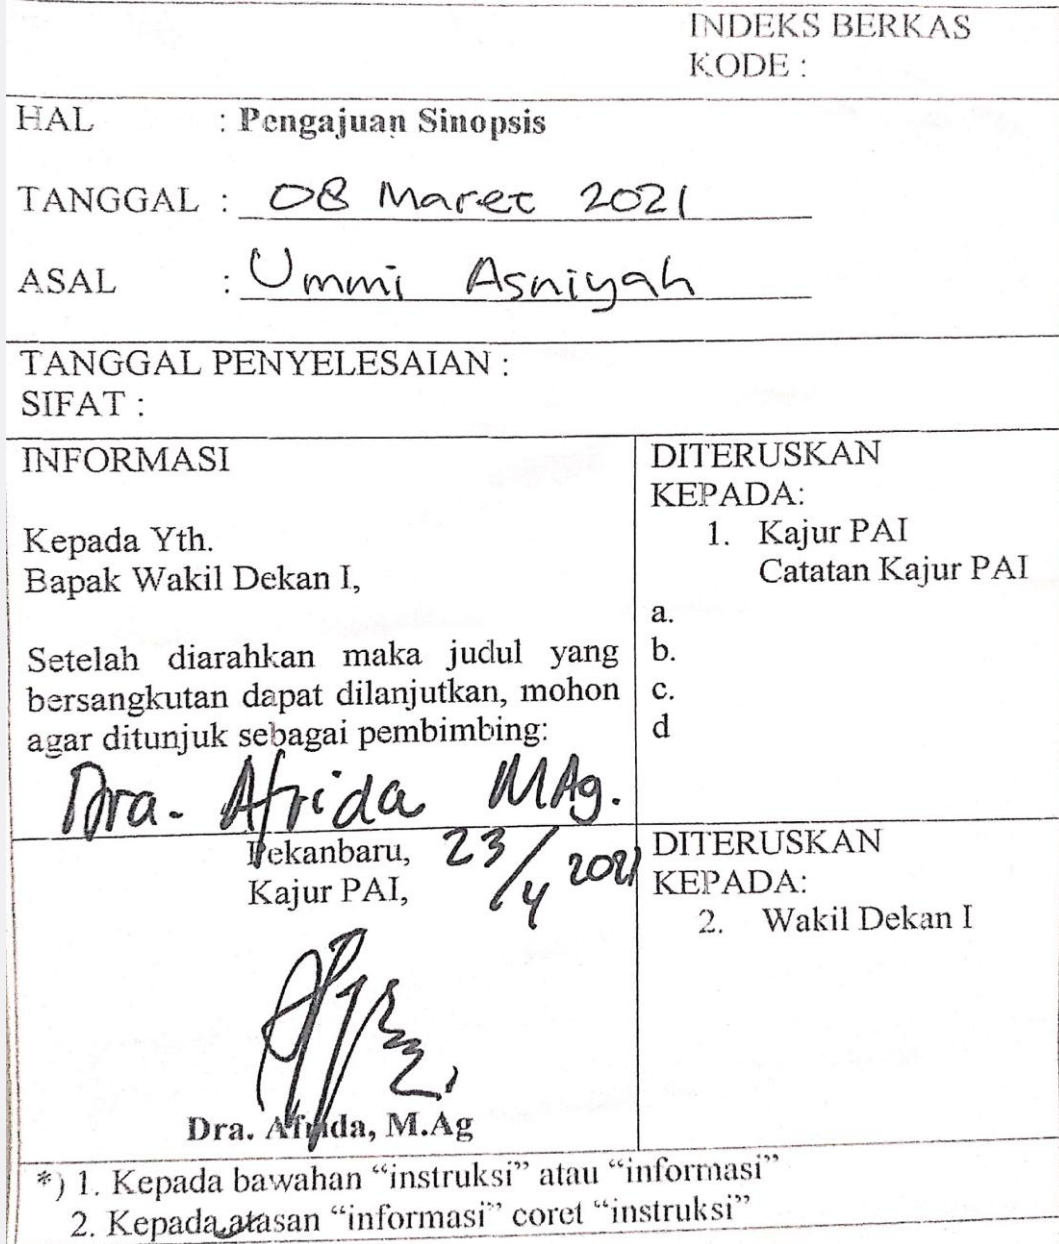 INDEKS BERKAS
KODE :
HAL : Pengajuan Sinopsis
TANGGAL : 08 Maret 2021
ASAL : Ummi Asniyah
TANGGAL PENYELESAIAN :
SIFAT :
INFORMASI
Kepada Yth.
Bapak Wakil Dekan I,
Setelah diarahkan maka judul yang
bersangkutan dapat dilanjutkan, mohon
agar ditunjuk sebagai pembimbing:
Dra. Afrida MAg.
DITERUSKAN
KEPADA:
1. Kajur PAI
Catatan Kajur PAI
a.
b.
c.
d
Pekanbaru, 23/4 2021
Kajur PAI,
Dra. Afrida, M.Ag
DITERUSKAN
KEPADA:
2. Wakil Dekan I
*) 1. Kepada bawahan “instruksi” atau “informasi”
2. Kepada atasan “informasi” coret “instruksi”